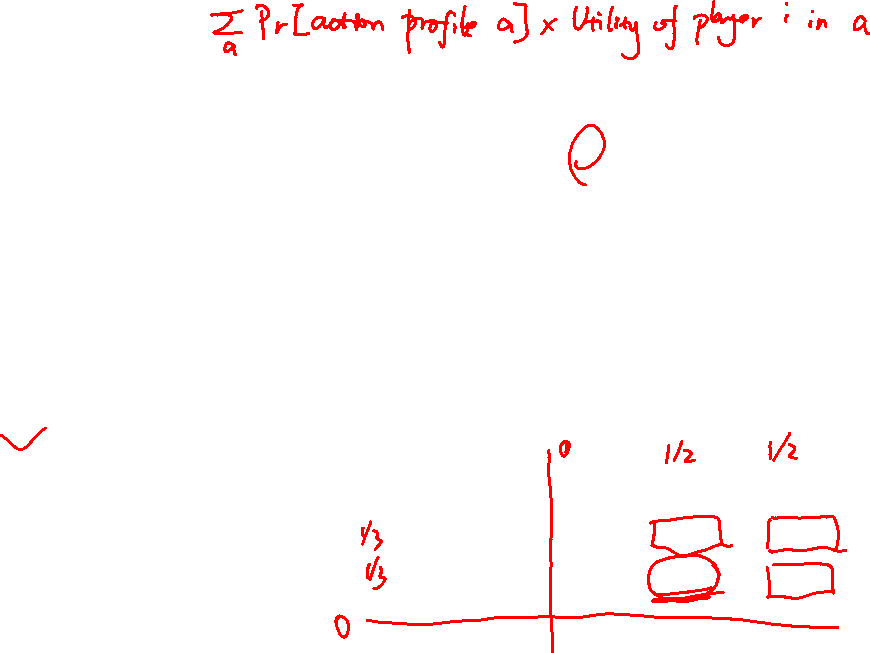 Σ Pr[action profile a] × Utility of player i in a
a
0 1/2 1/2
1/3
1/3
0